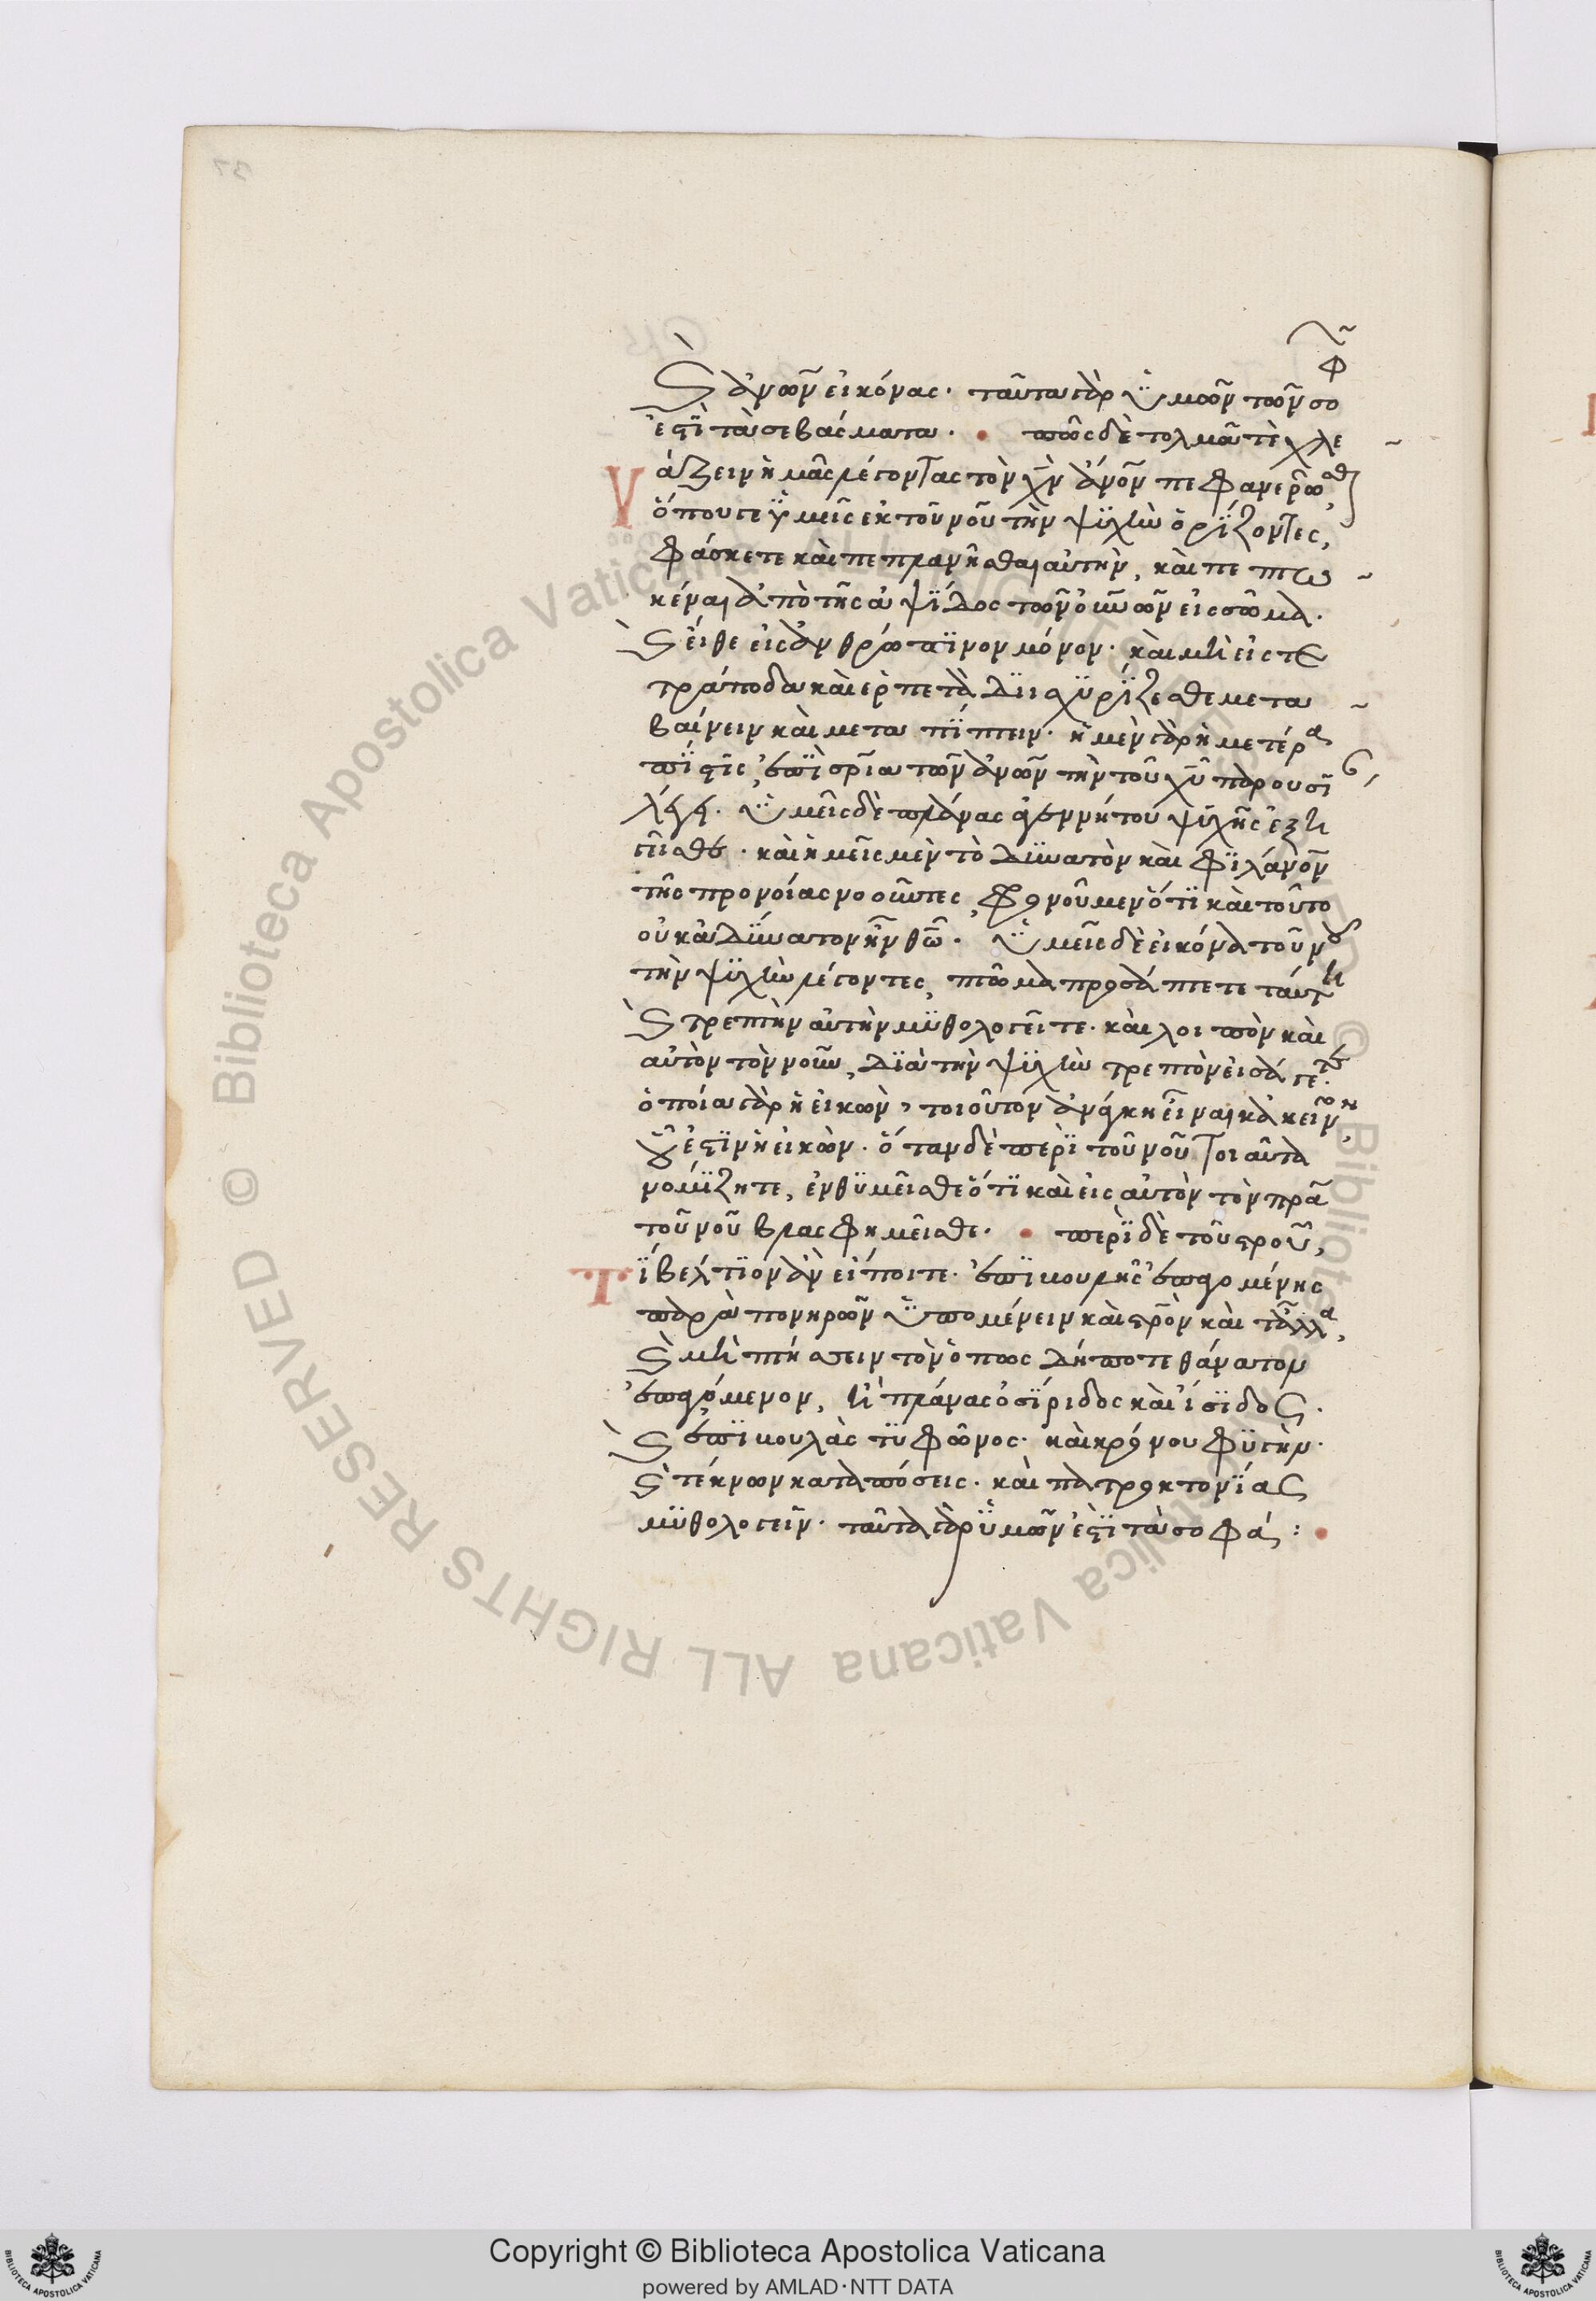 καὶ ἀνων εἰκόνας· ταῦτα γὰρ ὑμῶν τῶν σοφῶν
ἐστὶ τὰ σεβάσματα. πῶς δὲ τολμᾶτε χλε
άζειν ἡμᾶς λέγοντας τὸν χν ἀνον πεφανερῶσθαι,
ὅπου γε ὑμεῖς ἐκ τοῦ νοῦ τὴν ψυχὴν ὁρίζοντες,
φάσκετε καὶ πεπλανῆσθαι αὐτὴν, καὶ πεπτω
κέναι ἀπὸ τῆς ἀψίδος τῶν οὐνῶν εἰς σῶμα.
καὶ εἴθε εἰς ἀνθρώπινον μόνον· καὶ μὴ εἰς τε
τράποδα καὶ ἑρπετὰ διισχυρίζεσθε μετα
βαίνειν καὶ μεταπίπτειν· ἡ μὲν γὰρ ἡμετέρα
πίστις, ἐπὶ σρία τῶν ἀνων τὴν τοῦ χυ παρουσί
λέγει. ὑμεῖς δὲ πλάνας ἀγεννήτου ψυχῆς ἐξη
γεῖσθε. καὶ ἡμεῖς μὲν τὸ δυνατὸν καὶ φιλάνον
τῆς προνοίας νοοῦντες, φρονοῦμεν ὅτι καὶ τοῦτο
οὐκ ἀδύνατον ἦν θω. ὑμεῖς δὲ εἰκόνα τοῦ νοῦ
τὴν ψυχὴν λέγοντες, πτῶμα προσάπτετε ταύτη
καὶ τρεπτὴν αὐτὴν μυθολογεῖτε. καὶ λοιπὸν καὶ
αὐτὸν τὸν νοῦν, διὰ τὴν ψυχὴν τρεπτὸν εἰσάγετε.
ὁποία γὰρ ἡ εἰκὼν, τοιοῦτον ἀνάγκη εἶναι κἀκεῖνον,
οὗ ἐστὶν ἡ εἰκών. ὅταν δὲ περὶ τοῦ νοῦ τοιαῦτα
νομίζητε, ἐνθυμεῖσθε ὅτι καὶ εἰς αὐτὸν τὸν πρα
τοῦ νοῦ βλασφημεῖσθε. περὶ δὲ τοῦ σρου,
τί βέλτιον ἂν εἴποιτε. ἐπιβουλῆς ἐπαγομένης
παρὰ πονηρῶν ὑπομένειν καὶ σρὸν καὶ τἆλλα,
καὶ μὴ πτήσσειν τὸν ὁπωσδήποτε θάνατον
ἐπαγόμενον, ἢ πλάνας ὀσίριδος καὶ ἴσιδος.
καὶ ἐπιβουλὰς τυφῶνος. καὶ κρόνου φυγὴν.
καὶ τέκνων καταπόσεις. καὶ πατροκτονίας
μυθολογεῖν. ταῦτα γὰρ ὑμῶν ἐστὶ τὰ σοφά:
Copyright © Biblioteca Apostolica Vaticana
powered by AMLAD·NTT DATA